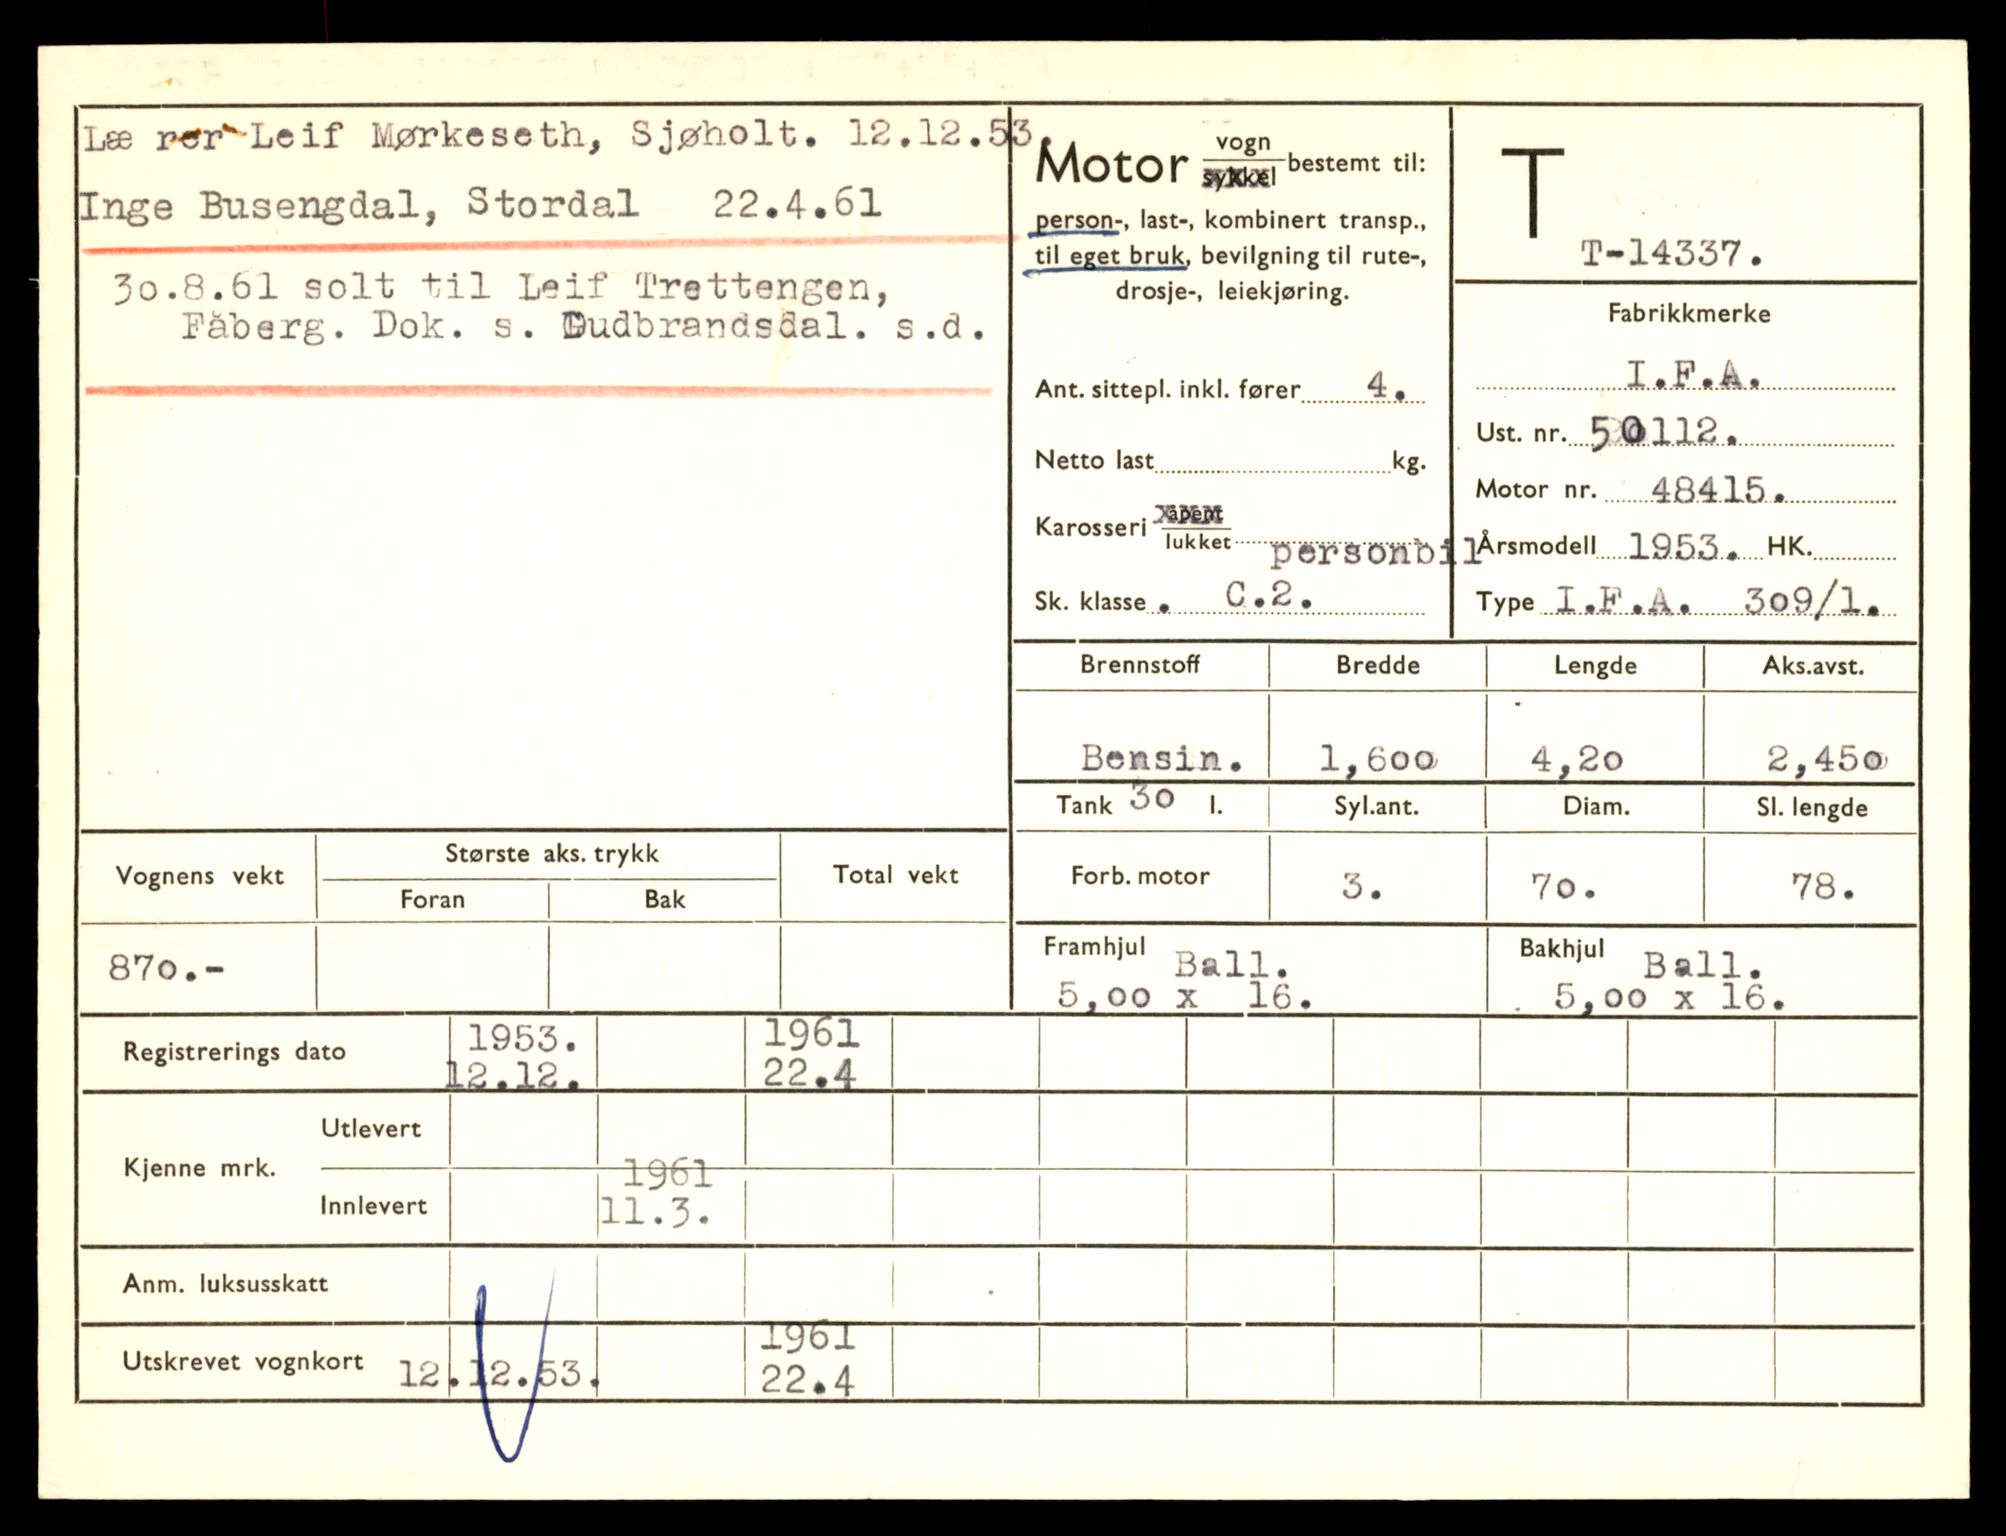 Læ rer Leif Mørkeseth, Sjøholt. 12.12.53.
Inge Busengdal, Stordal 22.4.61
30.8.61 solt til Leif Trettengen,
Fåberg. Dok. s. Gudbrandsdal. s.d.
Motor vogn
sykkel bestemt til:
person-, last-, kombinert transp.,
til eget bruk, bevilgning til rute-,
drosje-, leiekjøring.
Ant. sittepl. inkl. fører 4.
Netto last kg.
Karosseri åpent
lukket personbil
Sk. klasse . C.2.
T
T-14337.
Fabrikkmerke
I.F.A.
Ust. nr. 50112.
Motor nr. 48415.
Årsmodell 1953. HK.
Type I.F.A. 309/1.
Brennstoff Bredde Lengde Aks.avst.
Bensin. 1,600 4,20 2,450
Tank 30 l. Syl.ant. Diam. Sl. lengde
Forb. motor 3. 70. 78.
Framhjul Ball.
5,00 x 16.
Bakhjul Ball.
5,00 x 16.
Vognens vekt Største aks. trykk Total vekt
Foran Bak
870.-
Registrerings dato 1953. 1961
12.12. 22.4
Kjenne mrk. Utlevert
Innlevert 1961
11.3.
Anm. luksusskatt
Utskrevet vognkort 12.12.53. 1961
22.4